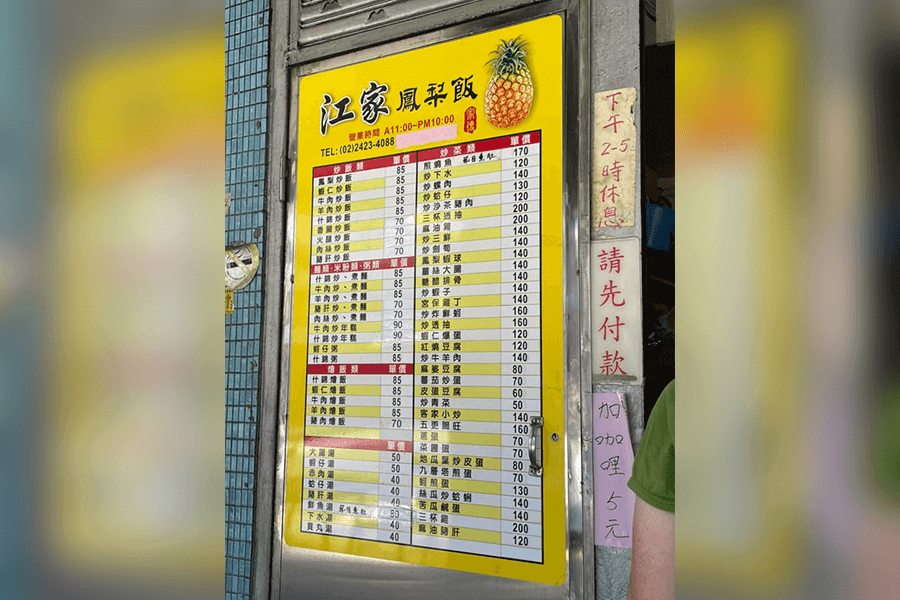 江家鳳梨飯
營業時間 A11:00~PM10:00
TEL:(02)2423-4088
炒飯類 單價
鳳梨炒飯 85
蝦仁炒飯 85
牛肉炒飯 85
羊肉炒飯 85
什錦炒飯 85
香腸炒飯 70
火腿炒飯 70
肉絲炒飯 70
豬肝炒飯 70
麵類·米粉類·粥類 單價
什錦炒、煮麵 85
牛肉炒、煮麵 85
羊肉炒、煮麵 85
豬肝炒、煮麵 70
肉絲炒、煮麵 70
牛肉炒年糕 90
什錦炒年糕 90
蚵仔粥 85
什錦粥 85
燴飯類 單價
什錦燴飯 85
蝦仁燴飯 85
牛肉燴飯 85
羊肉燴飯 85
豬肉燴飯 70
單價
大腸湯 50
蚵仔湯 50
赤肉湯 40
蛤仔湯 40
豬肝湯 40
鮮魚湯 80
下水湯 40
貢丸湯 40
炒菜類 單價
煎燒魚 170
炒下水 120
炒螺肉 140
炒蛤仔 130
炒沙茶豬肉 120
三杯透抽 200
麻油雞 200
炒三鮮 140
炒劍筍 140
鳳梨蝦球 140
薑絲大腸 140
糖醋排骨 140
炒蝦子 140
宮保雞丁 140
炒炸鮮蚵 160
炒透抽 160
蝦仁爆蛋 120
紅燒豆腐 120
炒牛羊肉 140
麻婆豆腐 80
蕃茄炒蛋 70
皮蛋豆腐 60
炒青菜 50
客家小炒 140
五更腸旺 160
蔥蛋 70
菜圃蛋 70
地瓜葉炒皮蛋 80
九層塔煎蛋 70
蚵煎蛋 130
絲瓜炒蛤蜊 100
苦瓜鹹蛋 140
三杯雞 200
麻油豬肝 120
下午2-5時休息
請先付款
加咖哩5元